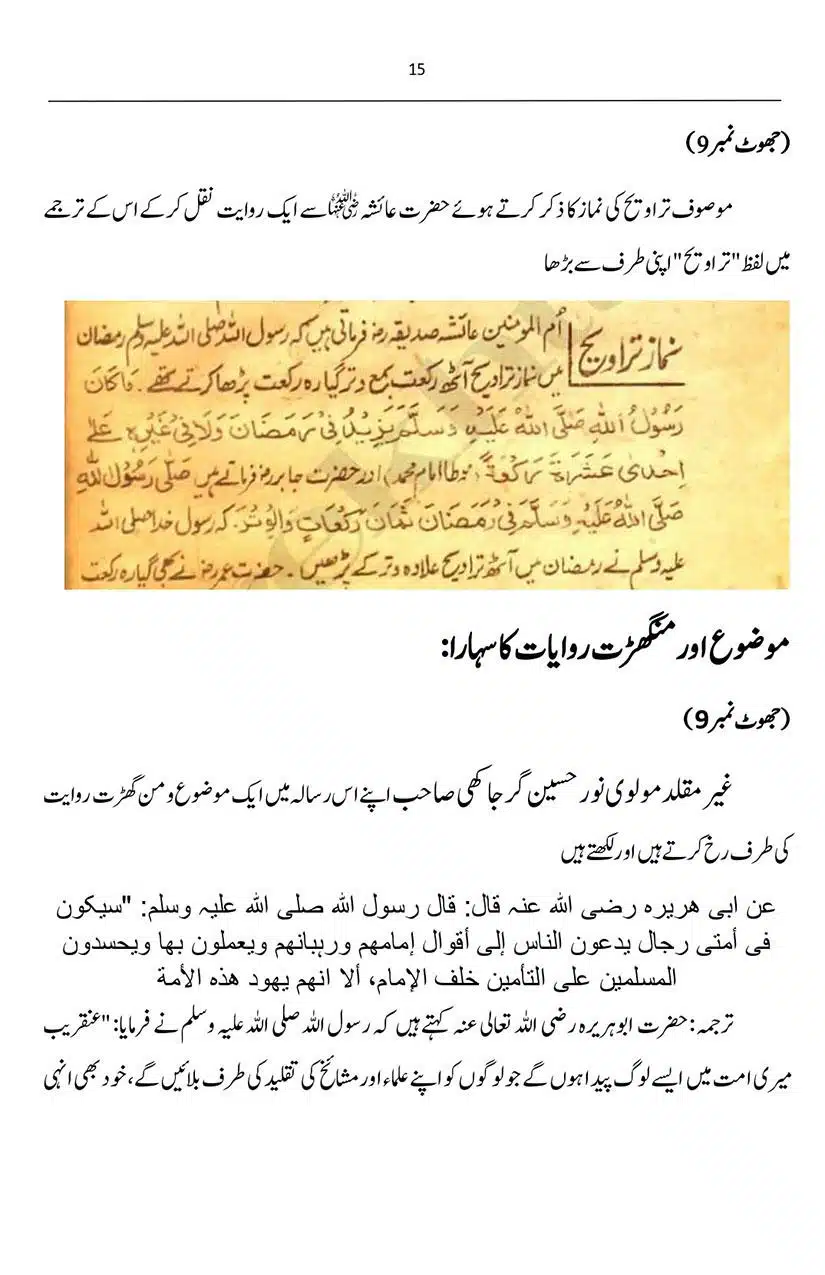 15
(جھوٹ نمبر 9)
موصوف تراویح کی نماز کا ذکر کرتے ہوئے حضرت عائشہ رضی اللہ عنہا سے ایک روایت نقل کر کے اس کے ترجمے
میں لفظ "تراویح" اپنی طرف سے بڑھا
نماز تراویح
اُم المومنین عائشہ صدیقہ رض فرماتی ہیں کہ رسول اللہ صلی اللہ علیہ وسلم رمضان
میں نماز تراویح آٹھ رکعت بمع وتر گیارہ رکعت پڑھا کرتے تھے۔ مَا کَانَ
رَسُوْلُ اللّٰہِ صَلَّی اللّٰہُ عَلَیْہِ وَسَلَّمَ یَزِیْدُ فِیْ رَمَضَانَ وَلَا فِیْ غَیْرِہٖ عَلٰے
اِحْدٰی عَشَرَۃَ رَکْعَۃً (موطا امام محمد) اور حضرت جابر رض فرماتے ہیں صَلّٰی رَسُوْلُ اللّٰہِ
صَلَّی اللّٰہُ عَلَیْہِ وَسَلَّمَ فِیْ رَمَضَانَ ثَمَانَ رَکْعَاتٍ وَالْوِتْرَ۔ کہ رسول خدا صلی اللہ
علیہ وسلم نے رمضان میں آٹھ تراویح علاوہ وتر کے پڑھیں۔ حضرت عمر رض نے بھی گیارہ رکعت
موضوع اور منگھڑت روایات کا سہارا:
(جھوٹ نمبر 9)
غیر مقلد مولوی نور حسین گرجاکھی صاحب اپنے اس رسالہ میں ایک موضوع و من گھڑت روایت
کی طرف رخ کرتے ہیں اور لکھتے ہیں
عن ابی ھریرہ رضی اللہ عنہ قال: قال رسول اللہ صلی اللہ علیہ وسلم: "سیکون
فی أمتی رجال یدعون الناس إلی أقوال إمامھم ورہبانھم ویعملون بھا ویحسدون
المسلمین علی التأمین خلف الإمام، ألا انھم یھود ھذہ الأمة
ترجمہ: حضرت ابوہریرہ رضی اللہ تعالی عنہ کہتے ہیں کہ رسول اللہ صلی اللہ علیہ وسلم نے فرمایا: "عنقریب
میری امت میں ایسے لوگ پیدا ہوں گے جو لوگوں کو اپنے علماء اور مشائخ کی تقلید کی طرف بلائیں گے، خود بھی انہی